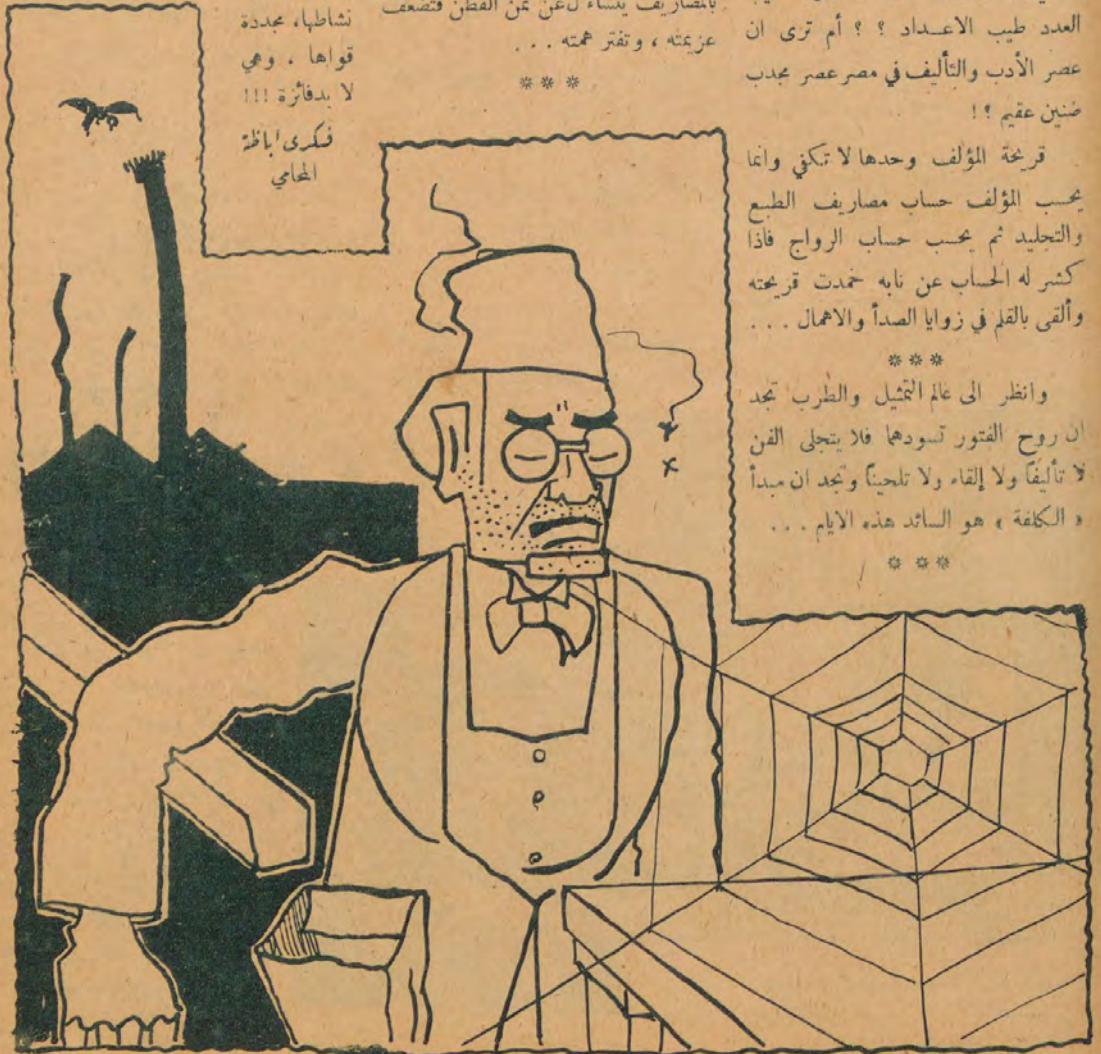 العدد طيب الاعداد ؟ ؟ أم ترى ان
عصر الأدب والتأليف في مصر عصر مجدب
ضنين عقيم ؟ !
قريحة المؤلف وحدها لا تكفي وانما
يحسب المؤلف حساب مصاريف الطبع
والتجليد ثم يحسب حساب الرواج فاذا
كشر له الحساب عن نابه خمدت قريحته
وألقى بالقلم في زوايا الصدأ والاهمال . . .
***
وانظر الى عالم التمثيل والطرب تجد
ان روح الفتور تسودهما فلا يتجلى الفن
لا تأليفاً ولا إلقاء ولا تلحيناً وتجد ان مبدأ
« الكلفة » هو السائد هذه الايام . . .
***
بالمصاريف يتساءل عن ثمن القطن فتضعف
عزيمته ، وتفتر همته . . .
***
نشاطها ، مجددة
قواها . وهي
لا بد فائزة !!!
فكرى اباظة
المحامي